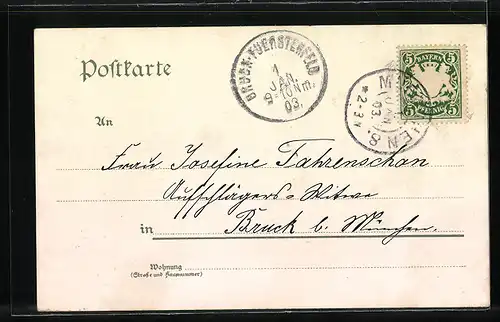 Postkarte
BRUCK-FUERSTENFELD
1
JAN.
9-10 Nm.
03.
BAYERN
5 5
5 PFENNIG 5
JAN
03
2-3 N
An
Frau Josefine Fahrenschon
Aufschlägers-Witwe
in Bruck b. München.
Wohnung
(Straße und Hausnummer)